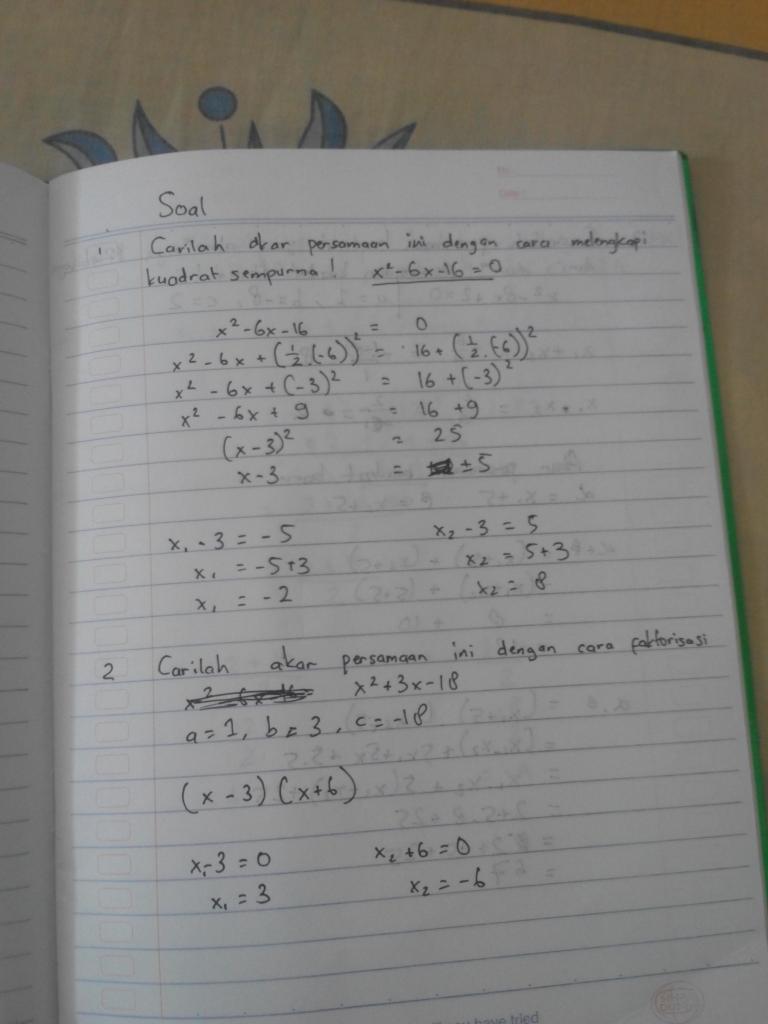 Soal
1 Carilah akar persamaan ini dengan cara melengkapi
kuadrat sempurna! x² - 6x - 16 = 0
x² - 6x - 16 = 0
x² - 6x + (½.(-6))² = 16 + (½.(-6))²
x² - 6x + (-3)² = 16 + (-3)²
x² - 6x + 9 = 16 + 9
(x - 3)² = 25
x - 3 = ± 5
x₁ - 3 = -5 x₂ - 3 = 5
x₁ = -5+3 x₂ = 5+3
x₁ = -2 x₂ = 8
2 Carilah akar persamaan ini dengan cara faktorisasi
x² + 3x - 18
a = 1, b = 3, c = -18
(x - 3) (x + 6)
x₁ - 3 = 0 x₂ + 6 = 0
x₁ = 3 x₂ = -6
have tried